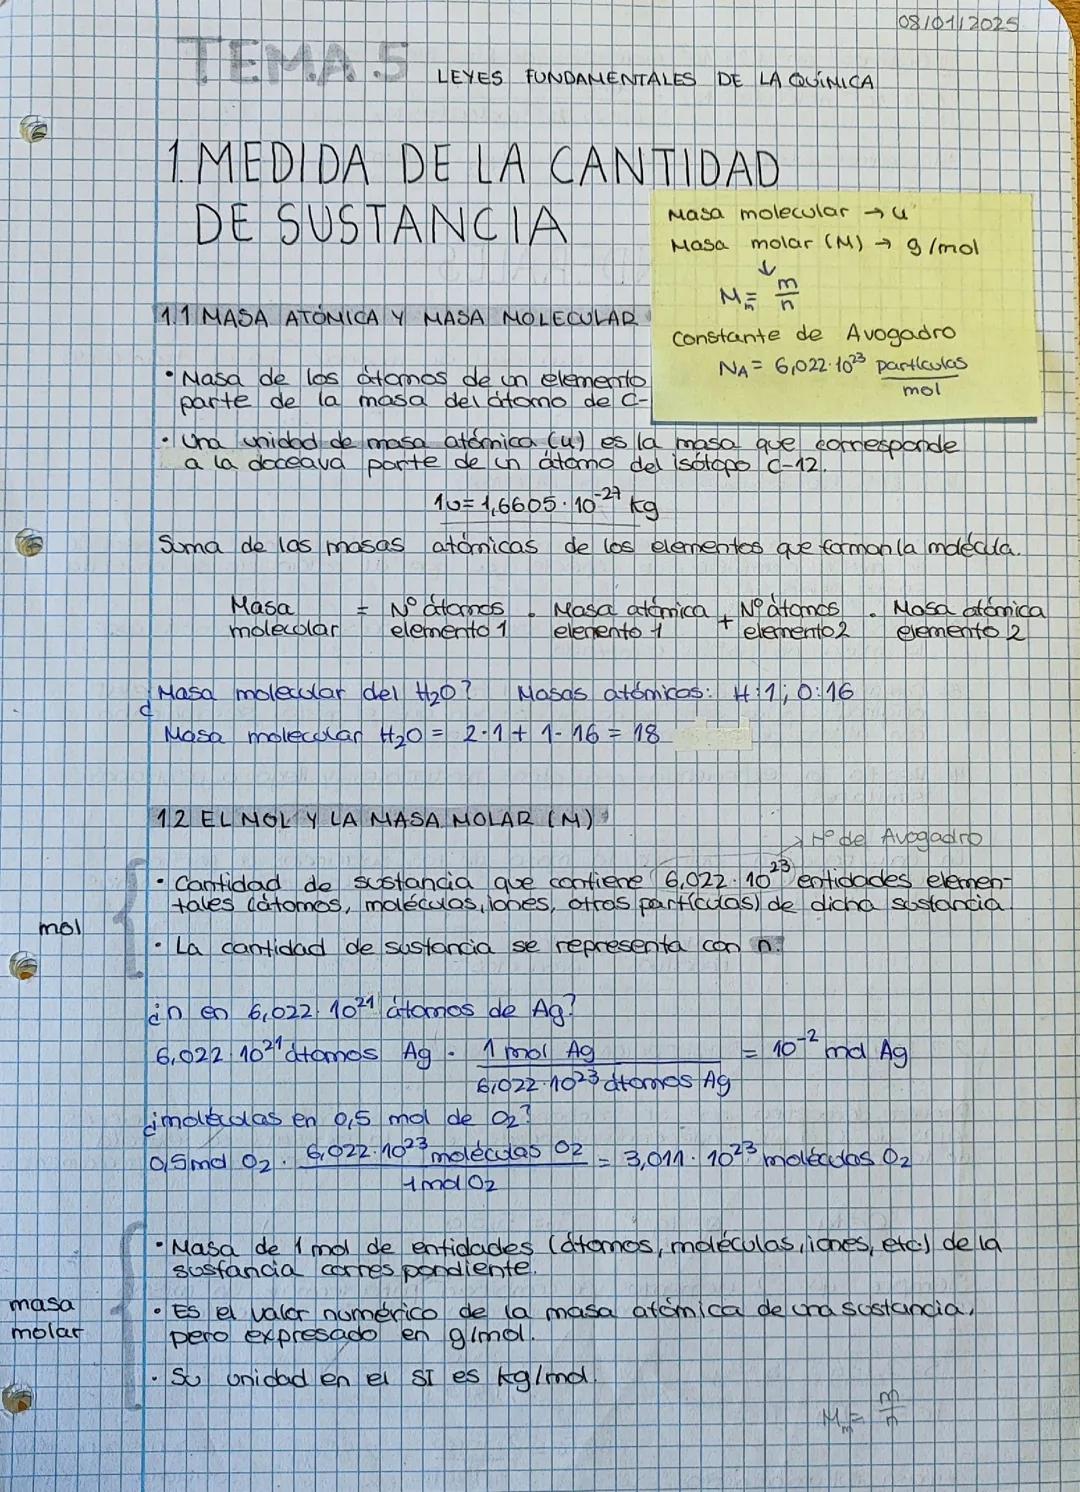 08/01/2025
TEMA 5 LEYES FUNDAMENTALES DE LA QUÍMICA
1. MEDIDA DE LA CANTIDAD
DE SUSTANCIA
Masa molecular → u
Masa molar (M) → g/mol
↓
Mm = m/n
constante de Avogadro
NA = 6,022·10²³ partículas/mol
1.1 MASA ATÓMICA Y MASA MOLECULAR
• Masa de los átomos de un elemento
parte de la masa del átomo de C-
• Una unidad de masa atómica (u) es la masa que corresponde
a la doceava parte de un átomo del isótopo C-12.
1u = 1,6605·10⁻²⁷ kg
Suma de las masas atómicas de los elementos que forman la molécula.
Masa molecular = Nº átomos elemento 1 · Masa atómica elemento 1 + Nº átomos elemento 2 · Masa atómica elemento 2
¿Masa molecular del H₂O? Masas atómicas: H:1; O:16
Masa molecular H₂O = 2·1 + 1·16 = 18
1.2 EL MOL Y LA MASA MOLAR (M)
→ Nº de Avogadro
• Cantidad de sustancia que contiene 6,022·10²³ entidades elemen-
tales (átomos, moléculas, iones, otras partículas) de dicha sustancia.
mol
• La cantidad de sustancia se representa con n.
¿n en 6,022·10²¹ átomos de Ag?
6,022·10²¹ átomos Ag · 1 mol Ag / 6,022·10²³ átomos Ag = 10⁻² mol Ag
¿moléculas en 0,5 mol de O₂?
0,5 mol O₂ · 6,022·10²³ moléculas O₂ / 1 mol O₂ = 3,011·10²³ moléculas O₂
• Masa de 1 mol de entidades (átomos, moléculas, iones, etc.) de la
sustancia correspondiente.
masa
molar
• Es el valor numérico de la masa atómica de una sustancia,
pero expresado en g/mol.
• Su unidad en el SI es kg/mol.
Mm = m/n